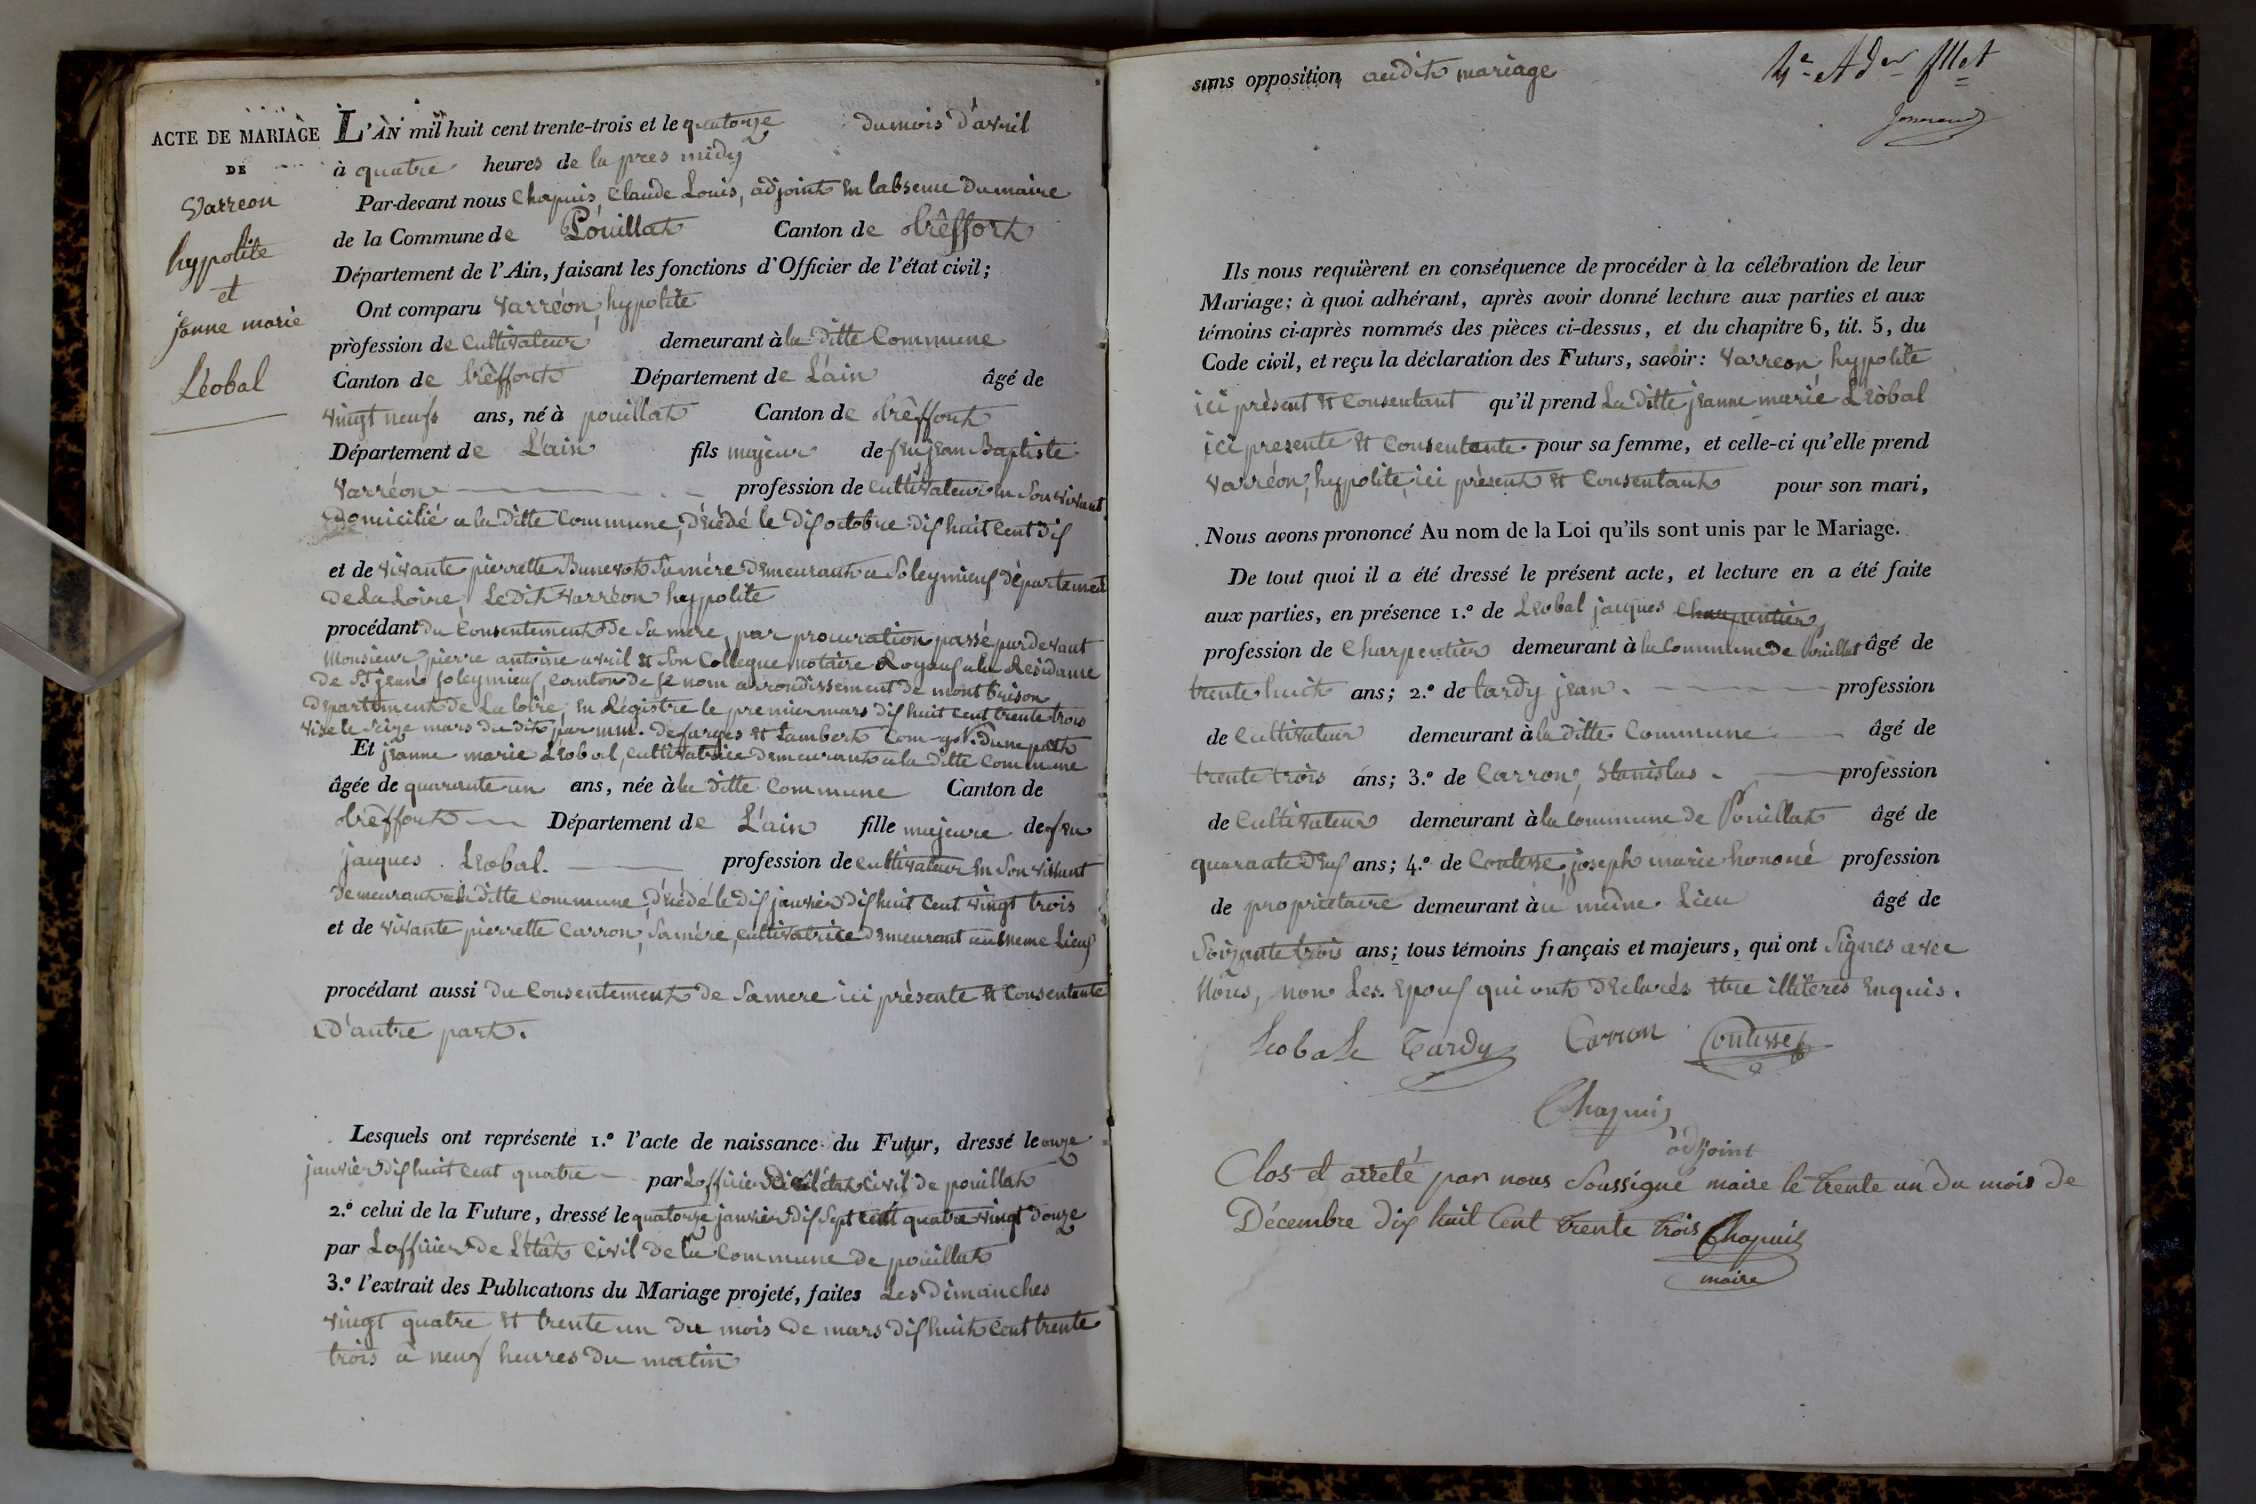 ACTE DE MARIAGE
DE
Varreon
hypolite
et
janne marie
Léobal
L'AN mil huit cent trente-trois et le quatorze du mois d'avril
à quatre heures de la pres midy
Par-devant nous Chapuis, Claude Louis, adjoint En labsence Du maire
de la Commune de Pouillat Canton de trêffort
Département de l'Ain, faisant les fonctions d'Officier de l'état civil;
Ont comparu Varréon, hypolite
profession de Cultivateur demeurant à la Ditte Commune
Canton de trêffort Département de L'ain âgé de
vingt neuf ans, né à pouillat Canton de trêffort
Département de L'ain fils majeur de feu jean Baptiste
Varréon profession de Cultivateur En Son vivant
Domicilié a la Ditte Commune, Décédé le Dix octobre Dix huit Cent Dix
et de vivante pierrette Sa mére Demeurant a Soleymieux Département
De La Loire, Le Dit Varréon hypolite
procédant Du Consentement De Sa mere, par procuration passé pardevant
Monsieur pierre antoine avril Et Son Collegue notaire Royaux a la Résidance
De St jean Soleymieux Canton de Ce nom arrondissement De mont brison
Département De La loire, En Régistré le premier mars Dix huit Cent trente trois
visé le seize mars Du Dit par mm. Defarges Et Lambert D'une part
Et jeanne marie Léobal, Cultivatrice Demeurant a la Ditte Commune
âgée de quarante un ans, née à la Ditte Commune Canton de
trêffort Département de L'ain fille majeure de feu
jacques Léobal. profession de Cultivateur En Son vivant
Demeurant a la Ditte Commune, Décédé le Dix janvier Dix huit Cent vingt trois
et de vivante pierrette Carron, Sa mére, Cultivatrice Demeurant au meme Lieux
procédant aussi Du Consentement De Sa mere ici présente Et Consentente
D'autre part.
Lesquels ont représenté 1.º l'acte de naissance du Futur, dressé le onze
janvier Dix huit Cent quatre par Lofficier De L'état Civil De pouillat
2.º celui de la Future, dressé le quatorze janvier Dix Sept Cent quatre vingt Douze
par Lofficier De L'état Civil De la Commune De pouillat
3.º l'extrait des Publications du Mariage projeté, faites Les Dimanches
vingt quatre Et trente un Du mois De mars Dix huit Cent trente
trois a neuf heures Du matin
sans opposition audit mariage
Ils nous requièrent en conséquence de procéder à la célébration de leur
Mariage: à quoi adhérant, après avoir donné lecture aux parties et aux
témoins ci-après nommés des pièces ci-dessus, et du chapitre 6, tit. 5, du
Code civil, et reçu la déclaration des Futurs, savoir: Varreon hypolite
ici présent Et Consentant qu'il prend La Ditte jeanne marie Léobal
ici presente Et Consentante pour sa femme, et celle-ci qu'elle prend
Varréon, hypolite, ici présent Et Consentant pour son mari,
Nous avons prononcé Au nom de la Loi qu'ils sont unis par le Mariage.
De tout quoi il a été dressé le présent acte, et lecture en a été faite
aux parties, en présence 1.º de Léobal jacques Charpentier,
profession de Charpentier demeurant à la Commune De Pouillat âgé de
trente huit ans; 2.º de tardy jean. profession
de Cultivateur demeurant à la Ditte Commune âgé de
trente trois ans; 3.º de Carron, Stanislas profession
de Cultivateur demeurant à la Commune De Pouillat âgé de
quarante Deux ans; 4.º de Contesse, joseph marie honoré profession
de proprietaire demeurant àu même Lieu âgé de
Soixante trois ans; tous témoins français et majeurs, qui ont Signes avec
Nous, non Les Epoux qui ont Déclarés être illiterés Enquis.
Leobale Tardy Carron Contesse
Chapuis
adjoint
Clos et arreté par nous Soussigné maire le trente un Du mois De
Décembre Dix huit Cent trente trois Chapuis
maire